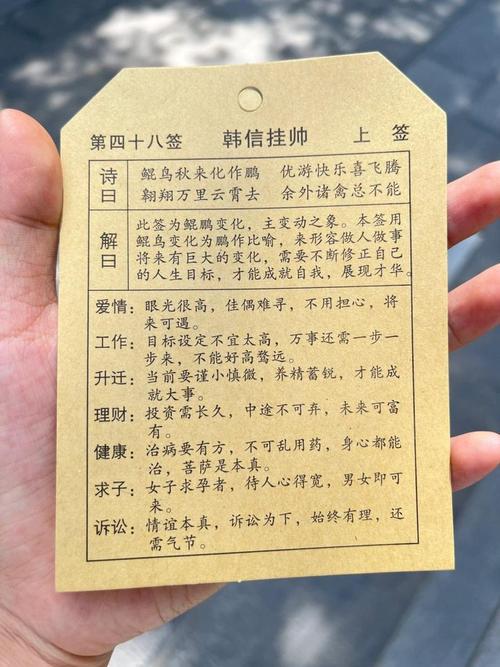 第四十八签 韩信挂帅 上签
诗曰
鲲鸟秋来化作鹏 优游快乐喜飞腾
翱翔万里云霄去 余外诸禽总不能
解曰
此签为鲲鹏变化，主变动之象。本签用
鲲鸟变化为鹏作比喻，来形容做人做事
将来有巨大的变化，需要不断修正自己
的人生目标，才能成就自我，展现才华。
爱情：眼光很高，佳偶难寻，不用担心，将
来可遇。
工作：目标设定不宜太高，万事还需一步一
步来，不能好高骛远。
升迁：当前要谨小慎微，养精蓄锐，才能成
就大事。
理财：投资需长久，中途不可弃，未来可富
有。
健康：治病要有方，不可乱用药，身心都能
治，菩萨是本真。
求子：女子求孕者，待人心得宽，男女即可
来。
诉讼：情谊本真，诉讼为下，始终有理，还
需气节。